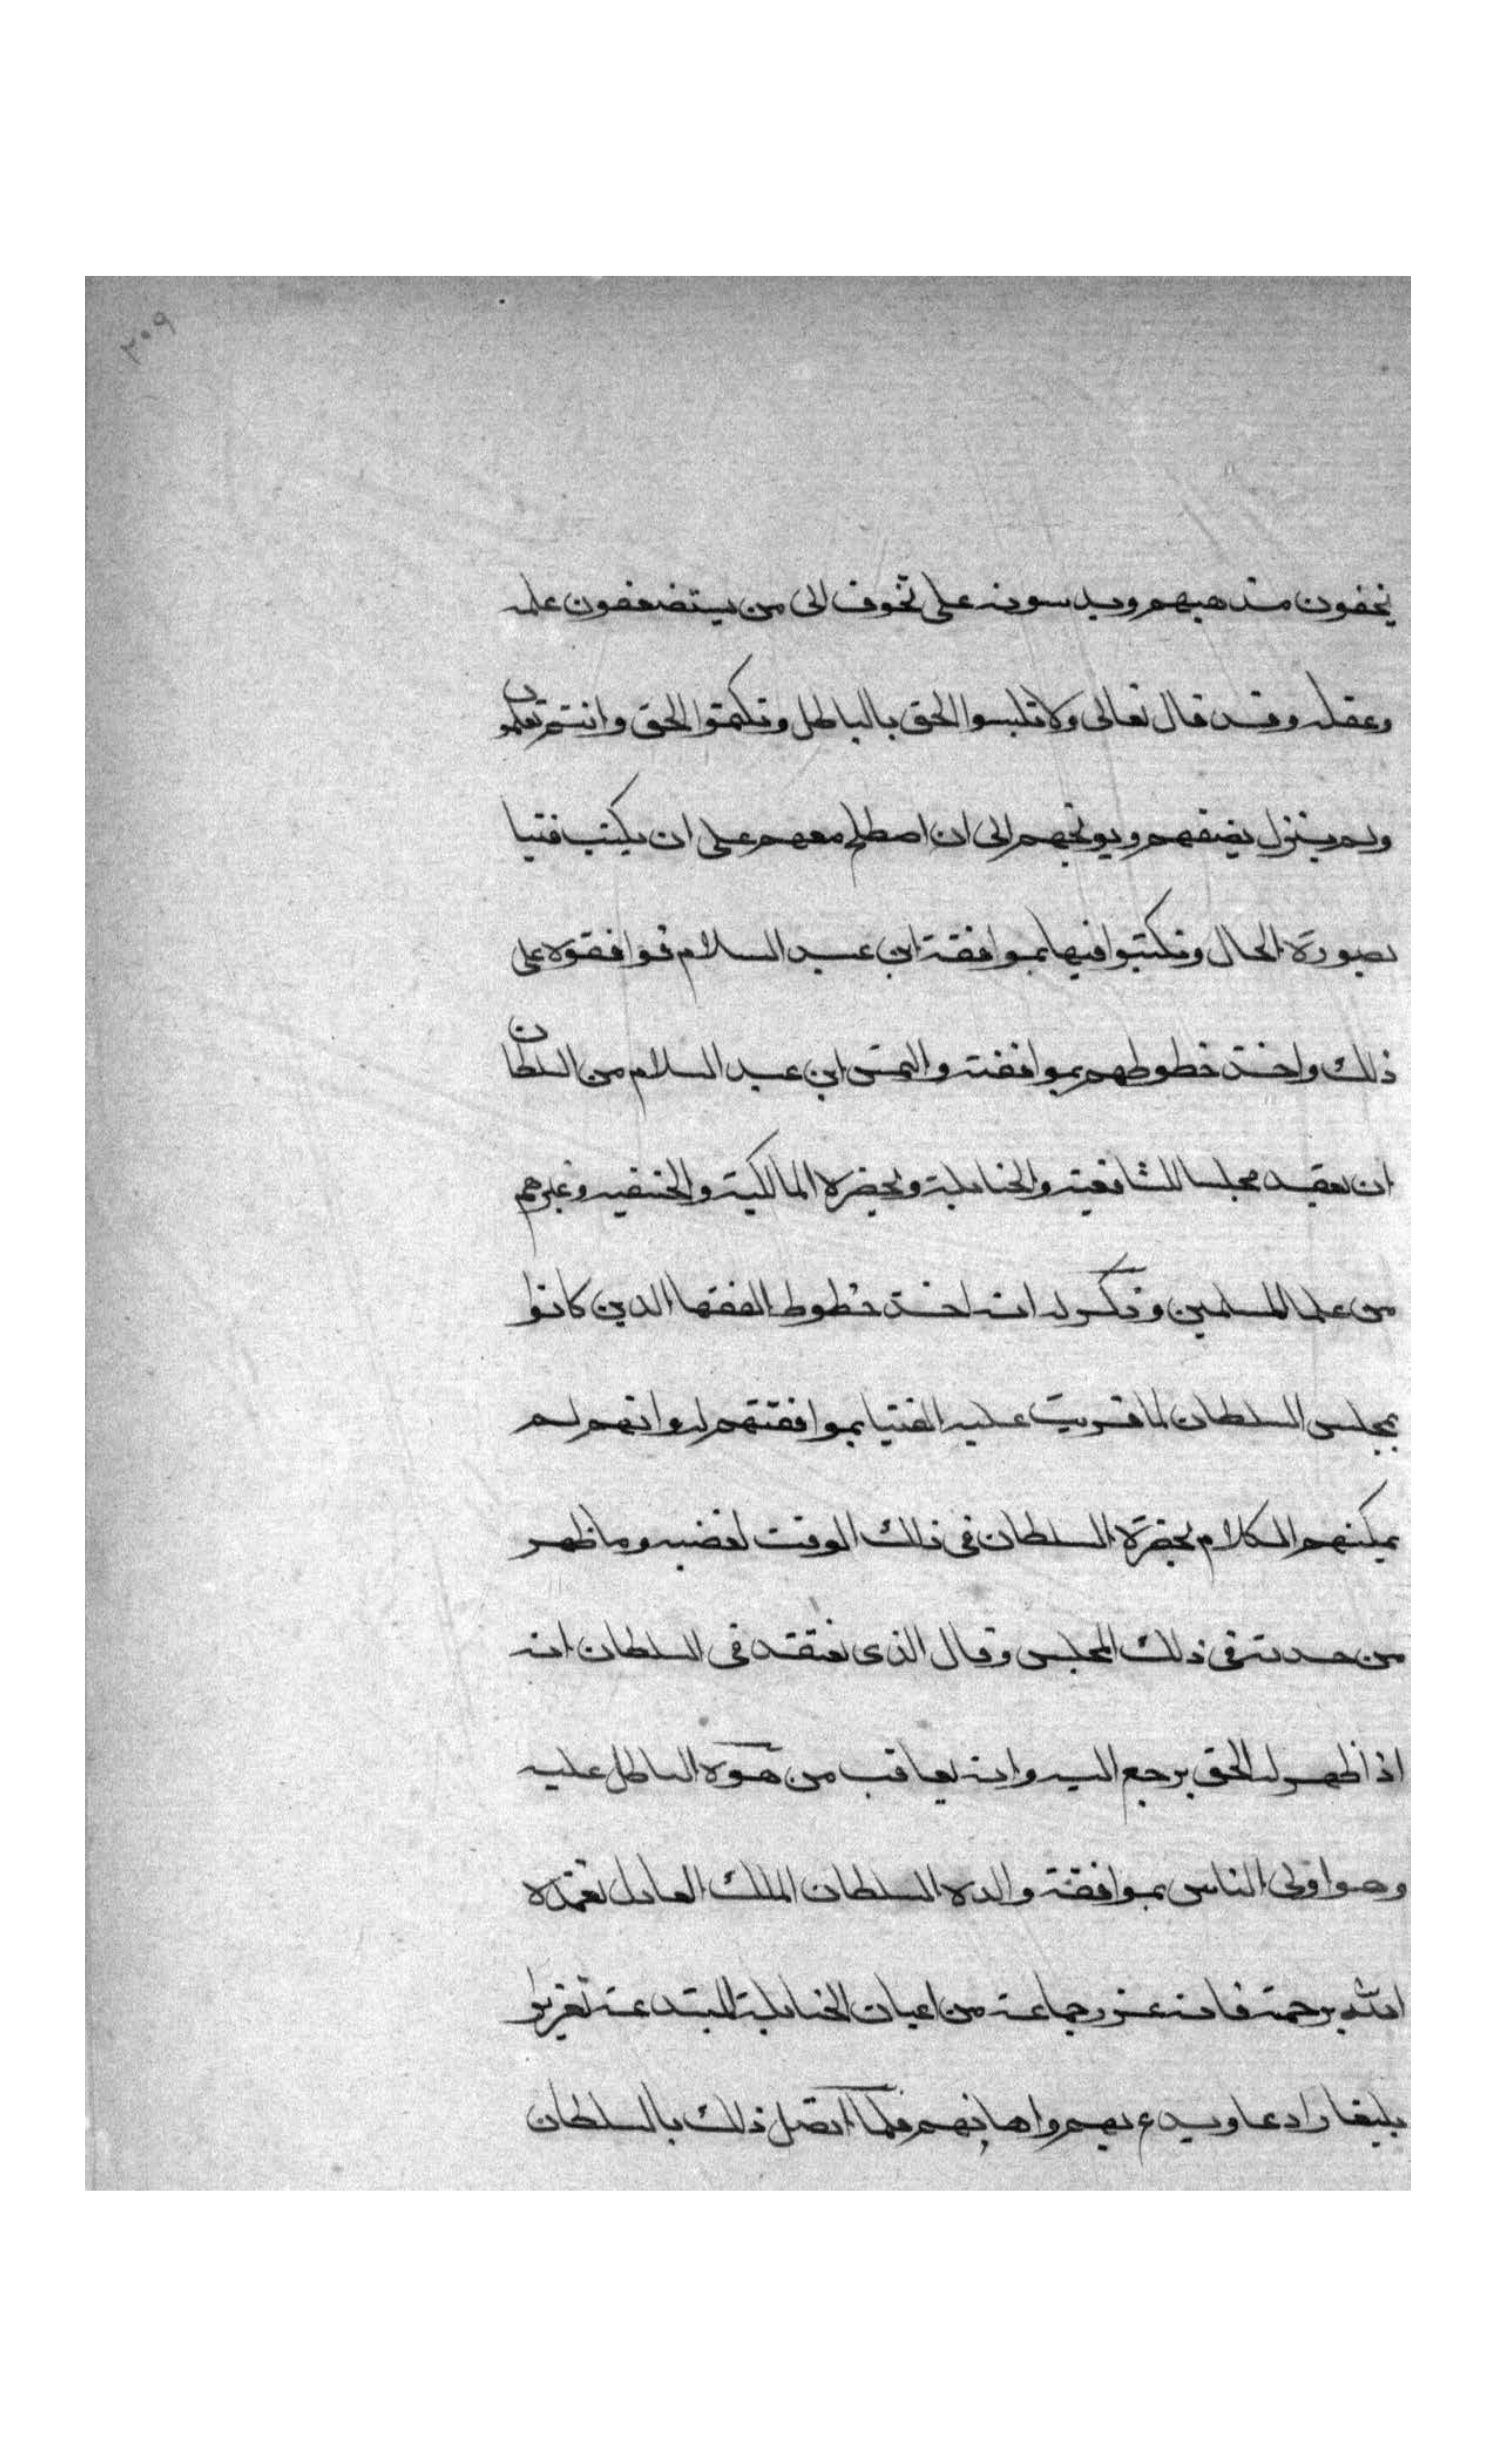 ٢٠٩
يخفون مذهبهم ويدسونه على تخوف الى من يستضعفون علمه
وعقله وقد قال تعالى ولا تلبسوا الحق بالباطل وتكتموا الحق وانتم تعلمون
ولم ينزل يضفهم ويوبخهم الى ان اصطلح معهم على ان يكتب فتيا
بصورة الحال وتكتبوا فيها بموافقة ابن عبد السلام فوافقوه على
ذلك واخذ خطوطهم بموافقته والتمس ابن عبد السلام من السلطان
ان يعقد مجلسا للشافعية والحنابلة ويحضره المالكية والحنفيه وغيرهم
من علما المسلمين وذكر له انه اخذ خطوط الفقها الذين كانوا
بمجلس السلطان لما قريت عليه الفتيا بموافقتهم له وانهم لم
يمكنهم الكلام بحضرة السلطان فى ذلك الوقت لغضبه وما ظهر
من حدته فى ذلك المجلس وقال الذى نعتقد فى السلطان انه
اذا ظهر له الحق يرجع اليه وانه يعاقب من موه الباطل عليه
وهو اولى الناس بموافقة والده السلطان الملك العادل تغمده
الله برحمته فانه عزر جماعة من اعيان الحنابلة المبتدعة تعزيرا
بليغا رادعا وبدع بهم واهانهم فلما اتصل ذلك بالسلطان